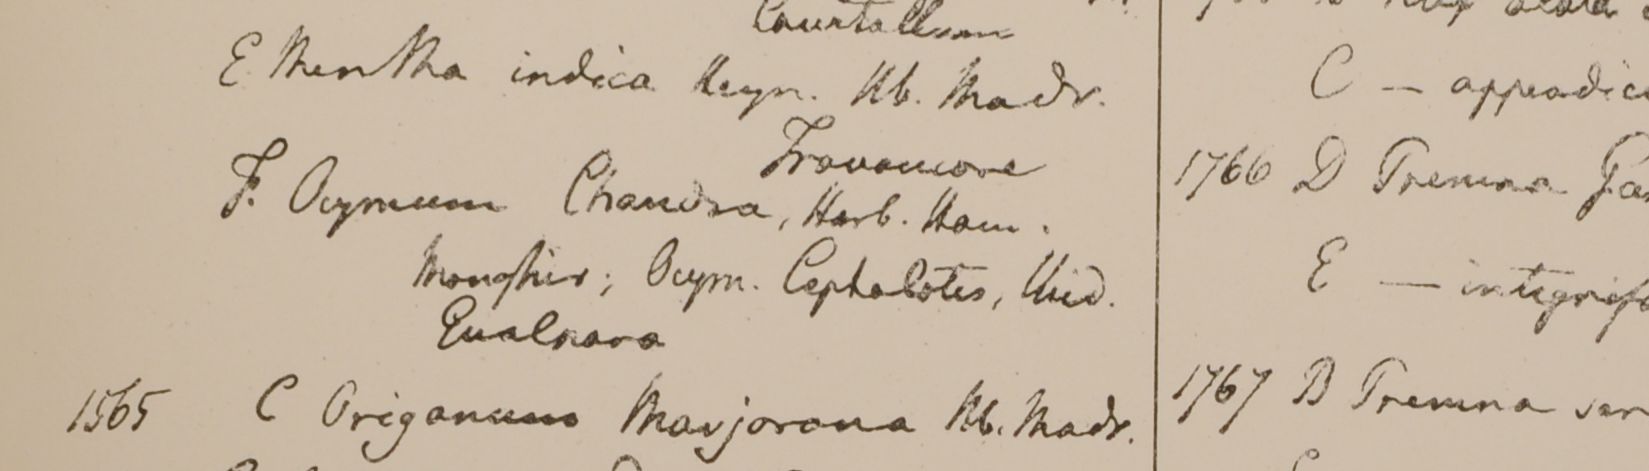 Courtallum
E Mentha indica Heyn. Hb. Madr.
Travancore
F. Ocymum Chandra, Herb. Ham.
Monghir; Ocym. Cephalotes, Ibid.
1565 C Origanum Marjorana Hb. Madr.
C — appendic
1766 D Premna
E — integrifo
1767 B Premna ser